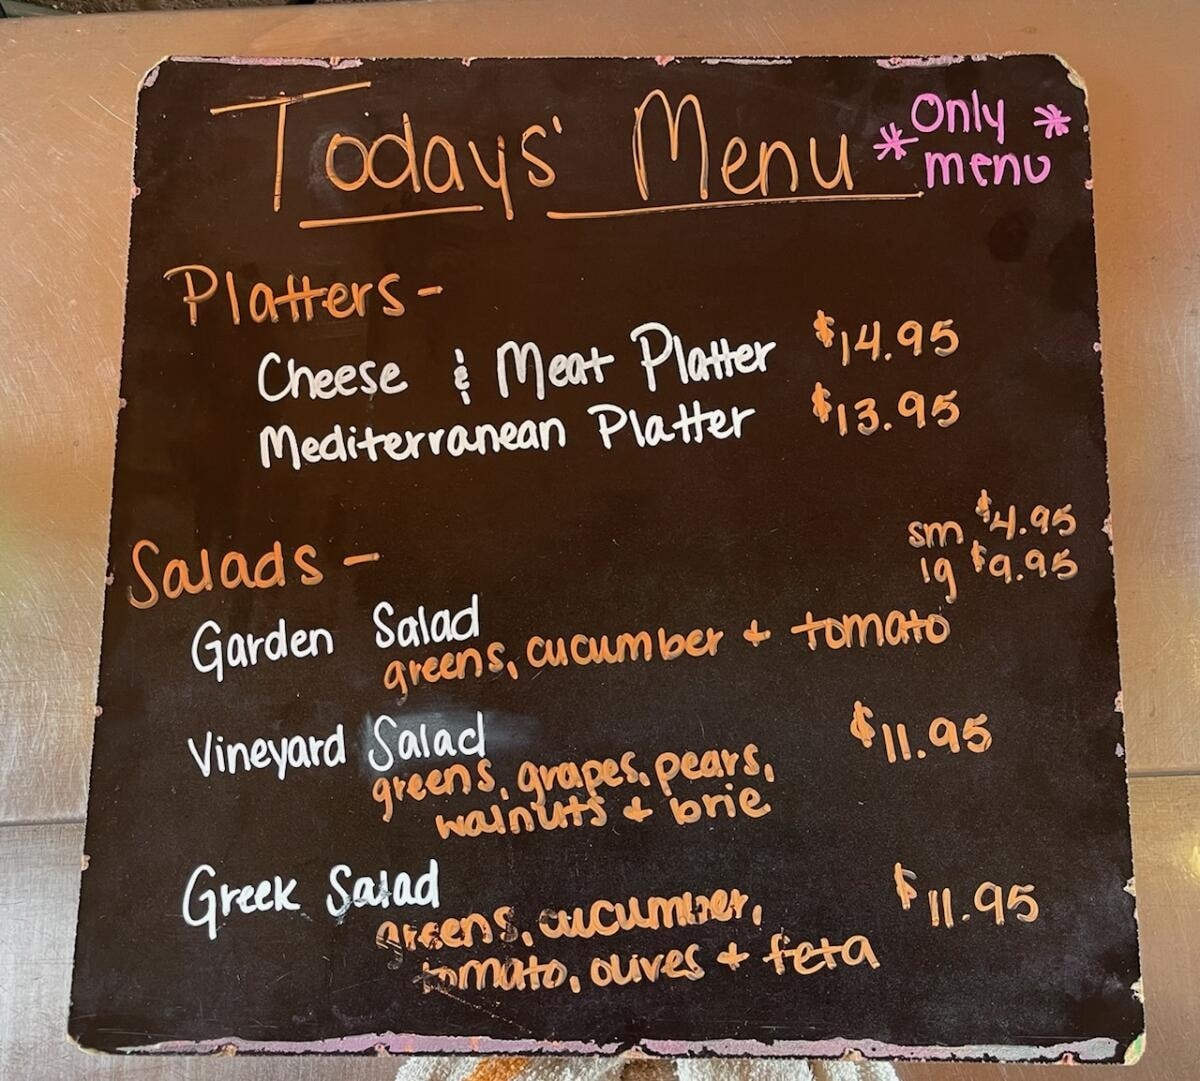 Todays' Menu
*Only *
menu
Platters-
Cheese & Meat Platter $14.95
Mediterranean Platter $13.95
Salads-
sm $4.95
lg $9.95
Garden Salad
greens, cucumber + tomato
Vineyard Salad $11.95
greens, grapes, pears,
walnuts + brie
Greek Salad $11.95
greens, cucumber,
tomato, olives + feta